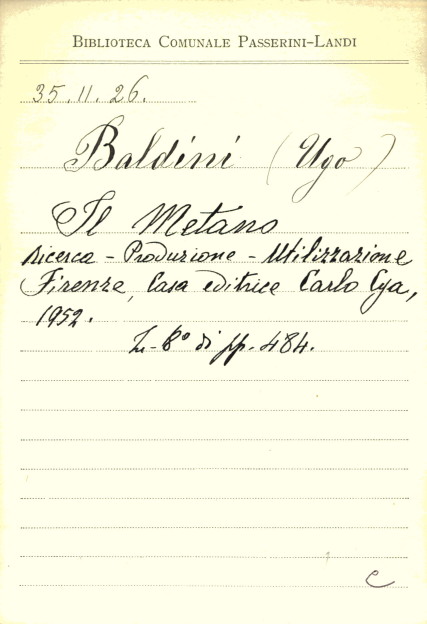 BIBLIOTECA COMUNALE PASSERINI-LANDI
35.11.26.
Baldini (Ugo)
Il Metano
Ricerca - Produzione - Utilizzazione
Firenze, Casa editrice Carlo Cya,
1952.
In-8° di pp. 484.
C